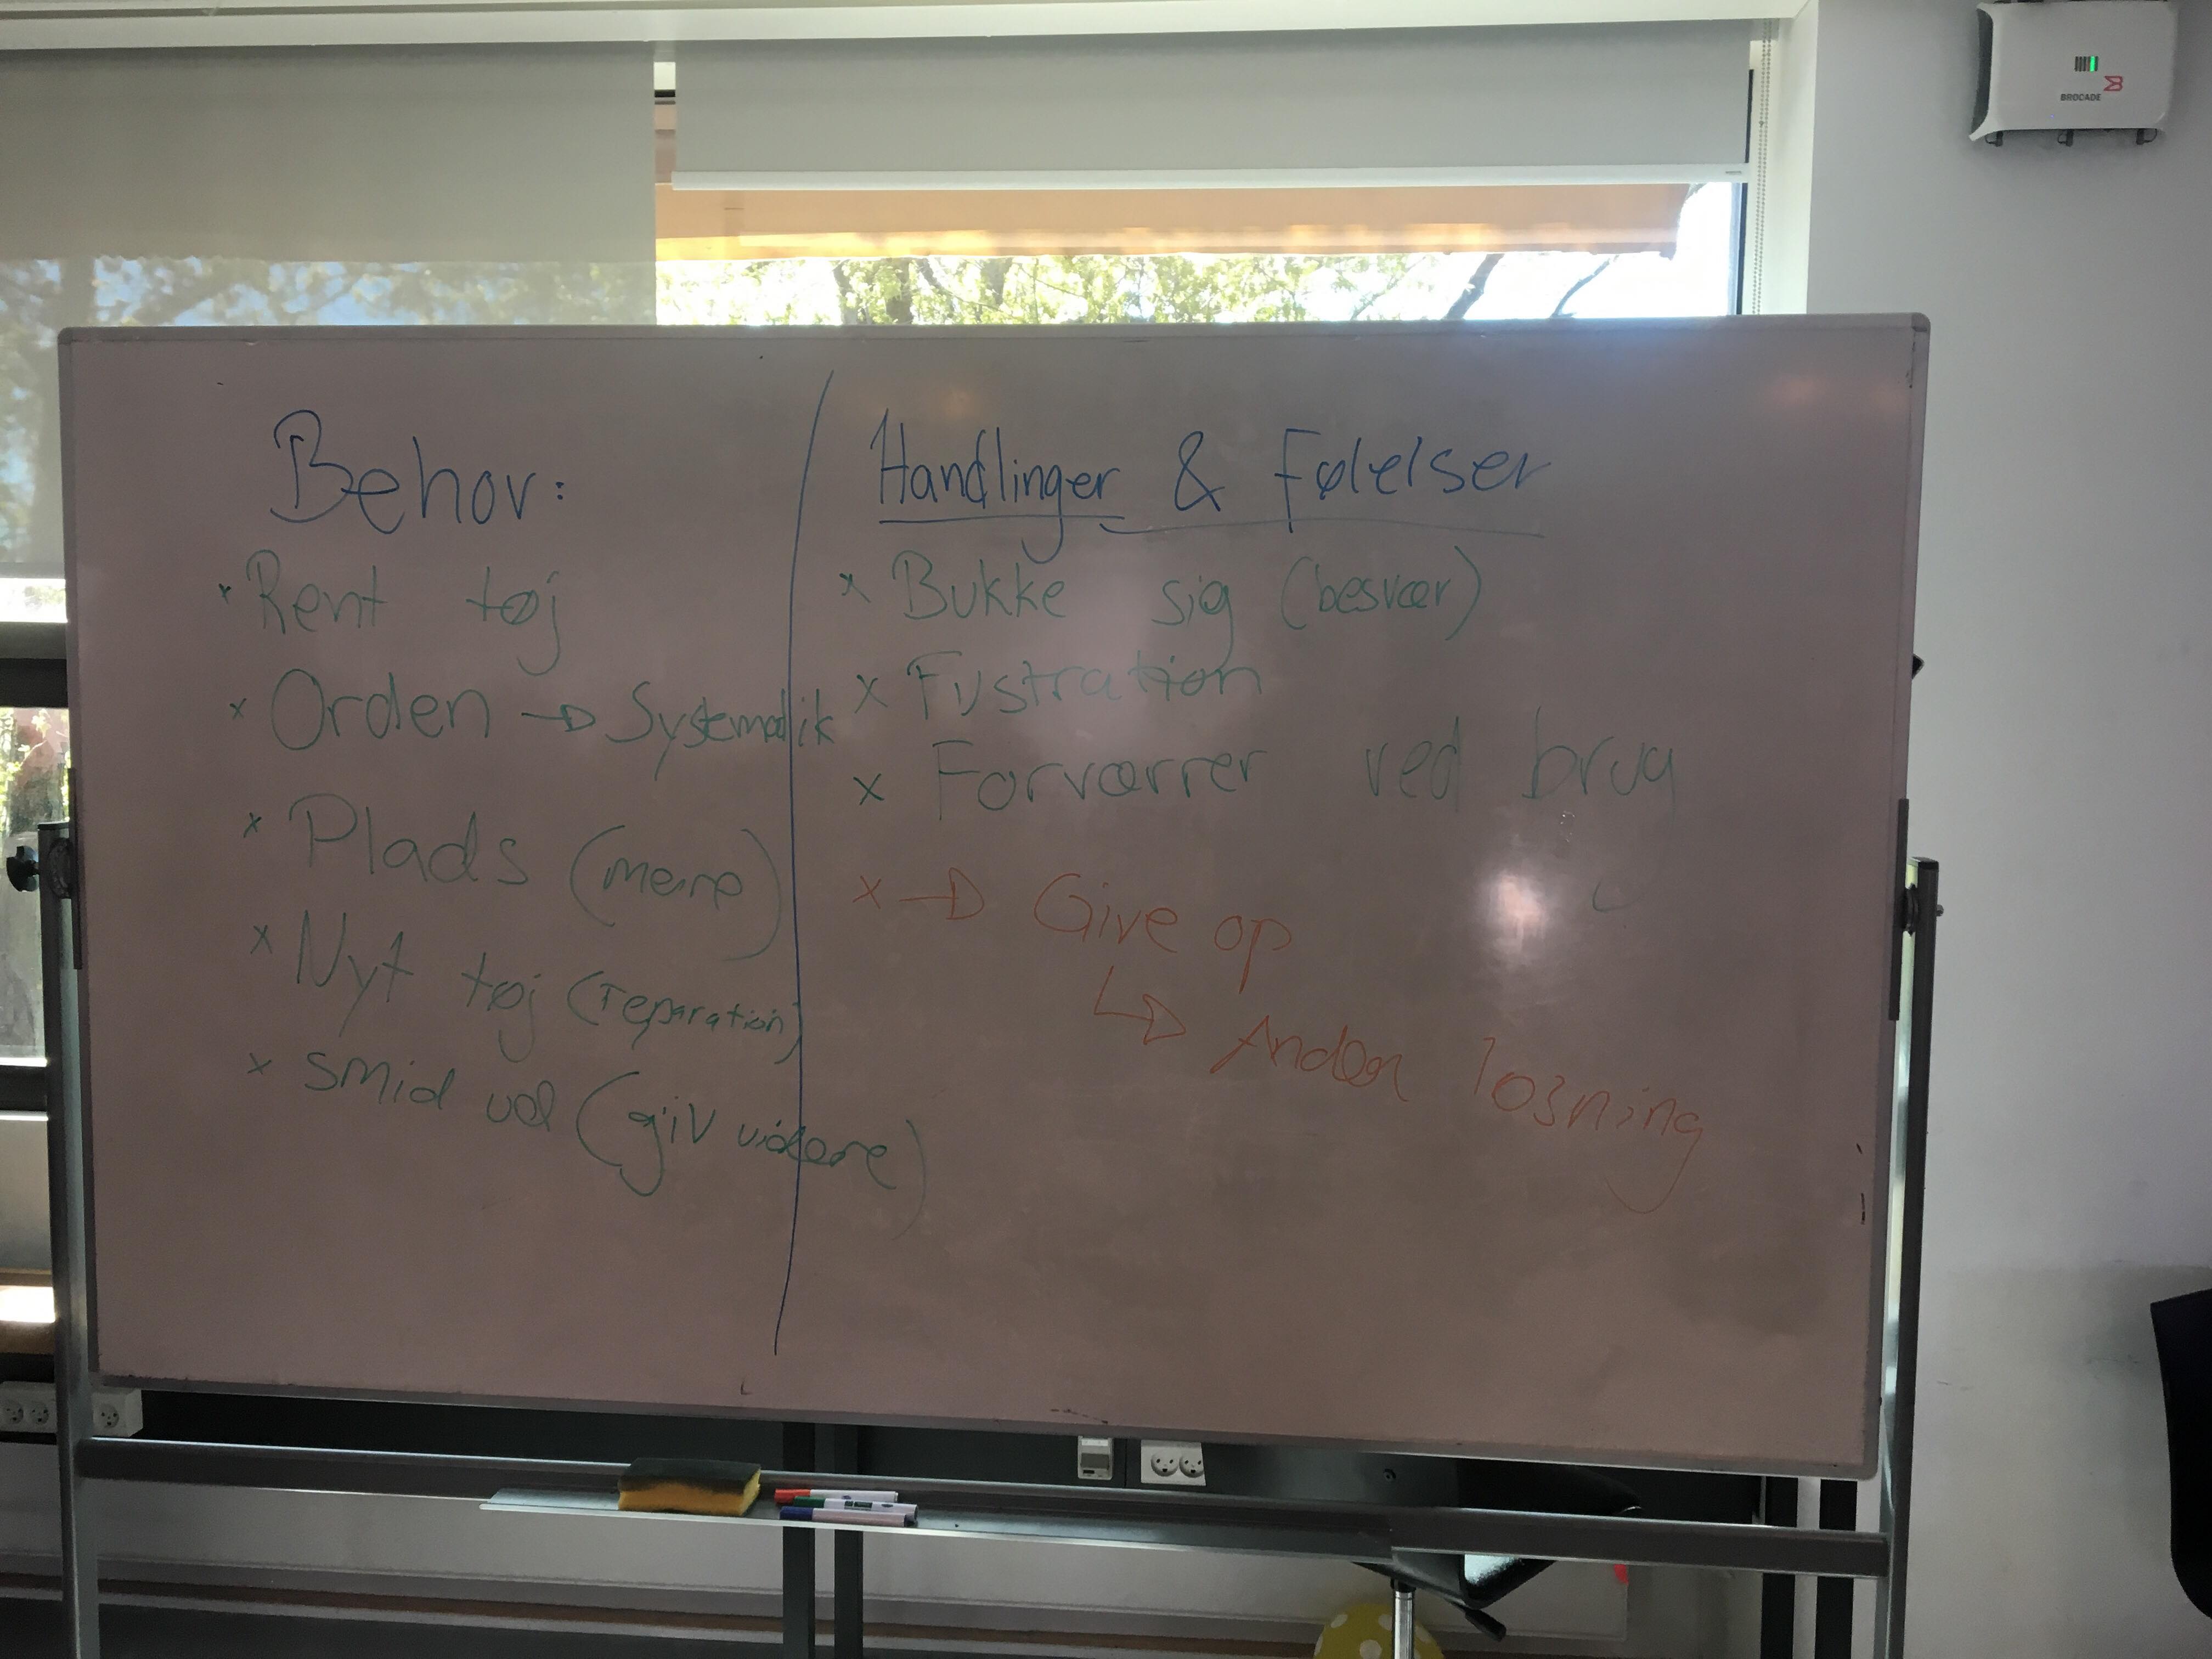 BROCADE
Behov:
× Rent tøj
× Orden → Systematik
× Plads (mere)
× Nyt tøj (reparation)
× Smid ud (giv videre)
Handlinger & Følelser
× Bukke sig (besvær)
× Fustration
× Forværrer ved brug
× → Give op
↳ Anden løsning